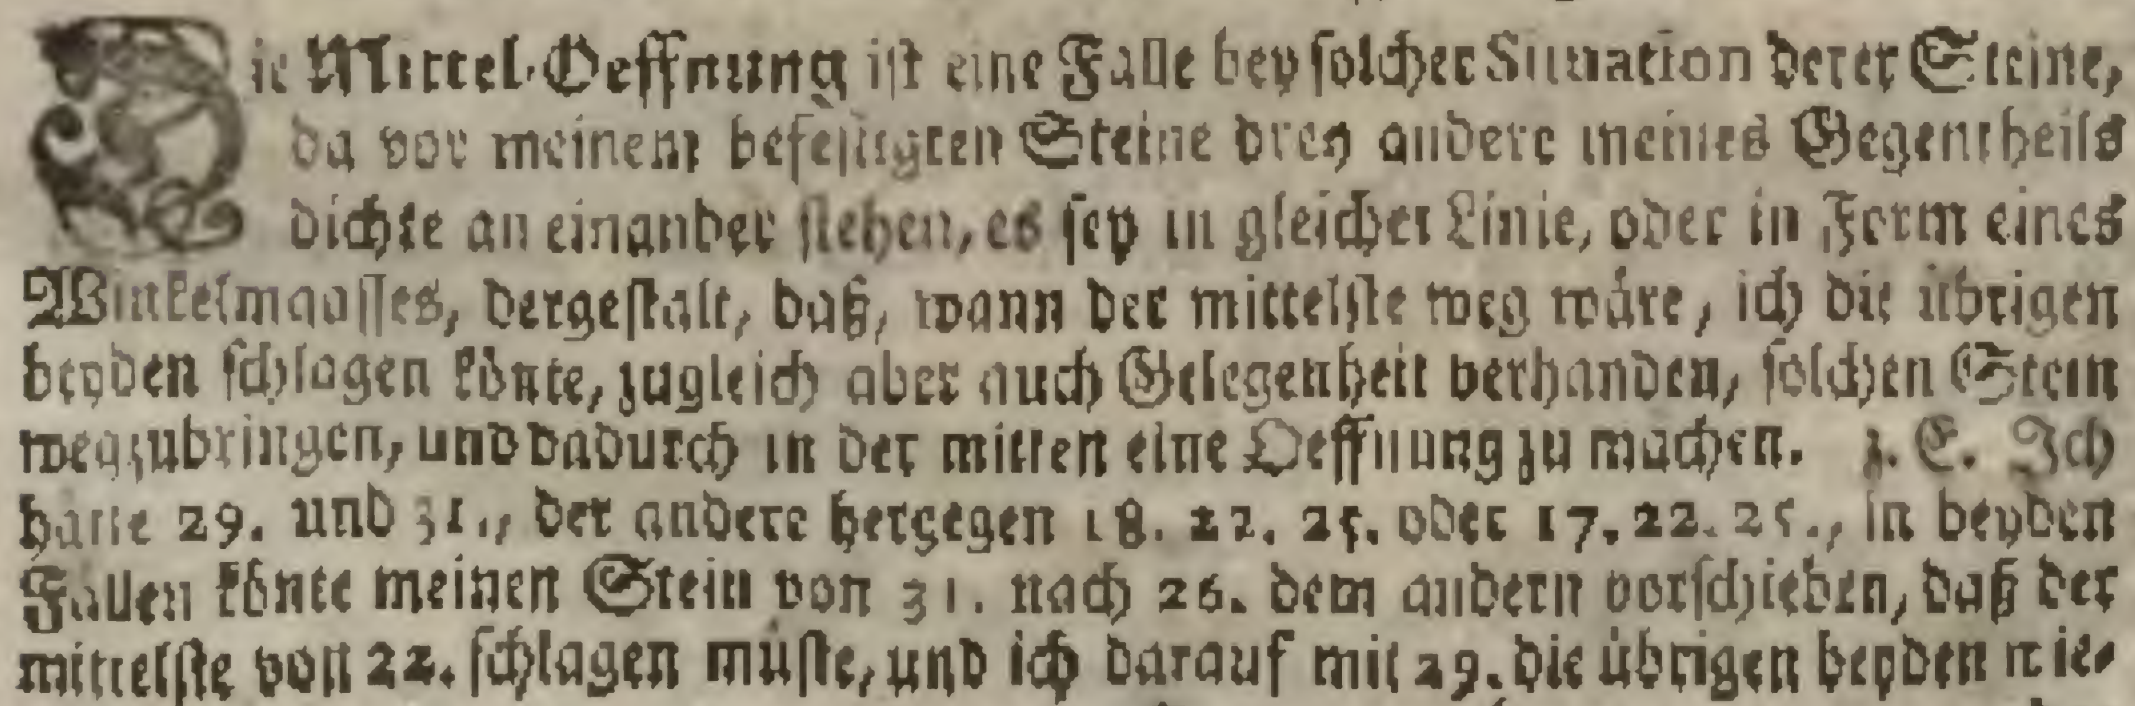 Die Mittel-Oeffnung ist eine Falle bey solcher Situation derer Steine,
da vor meinem befestigten Steine drey andere meines Gegentheils
dichte an einander stehen, es sey in gleicher Linie, oder in Form eines
Winkelmaasses, dergestalt, daß, wann der mittelste weg wäre, ich die übrigen
beyden schlagen könte, zugleich aber auch Gelegenheit verhanden, solchen Stein
wegzubringen, und dadurch in der mitten eine Oeffnung zu machen. z. E. Ich
hätte 29. und 31., der andere hergegen 18. 22. 25. oder 17. 22. 25., in beyden
Fällen könte meinen Stein von 31. nach 26. dem andern vorschieben, daß der
mittelste von 22. schlagen müste, und ich darauf mit 29. die übrigen beyden wie-